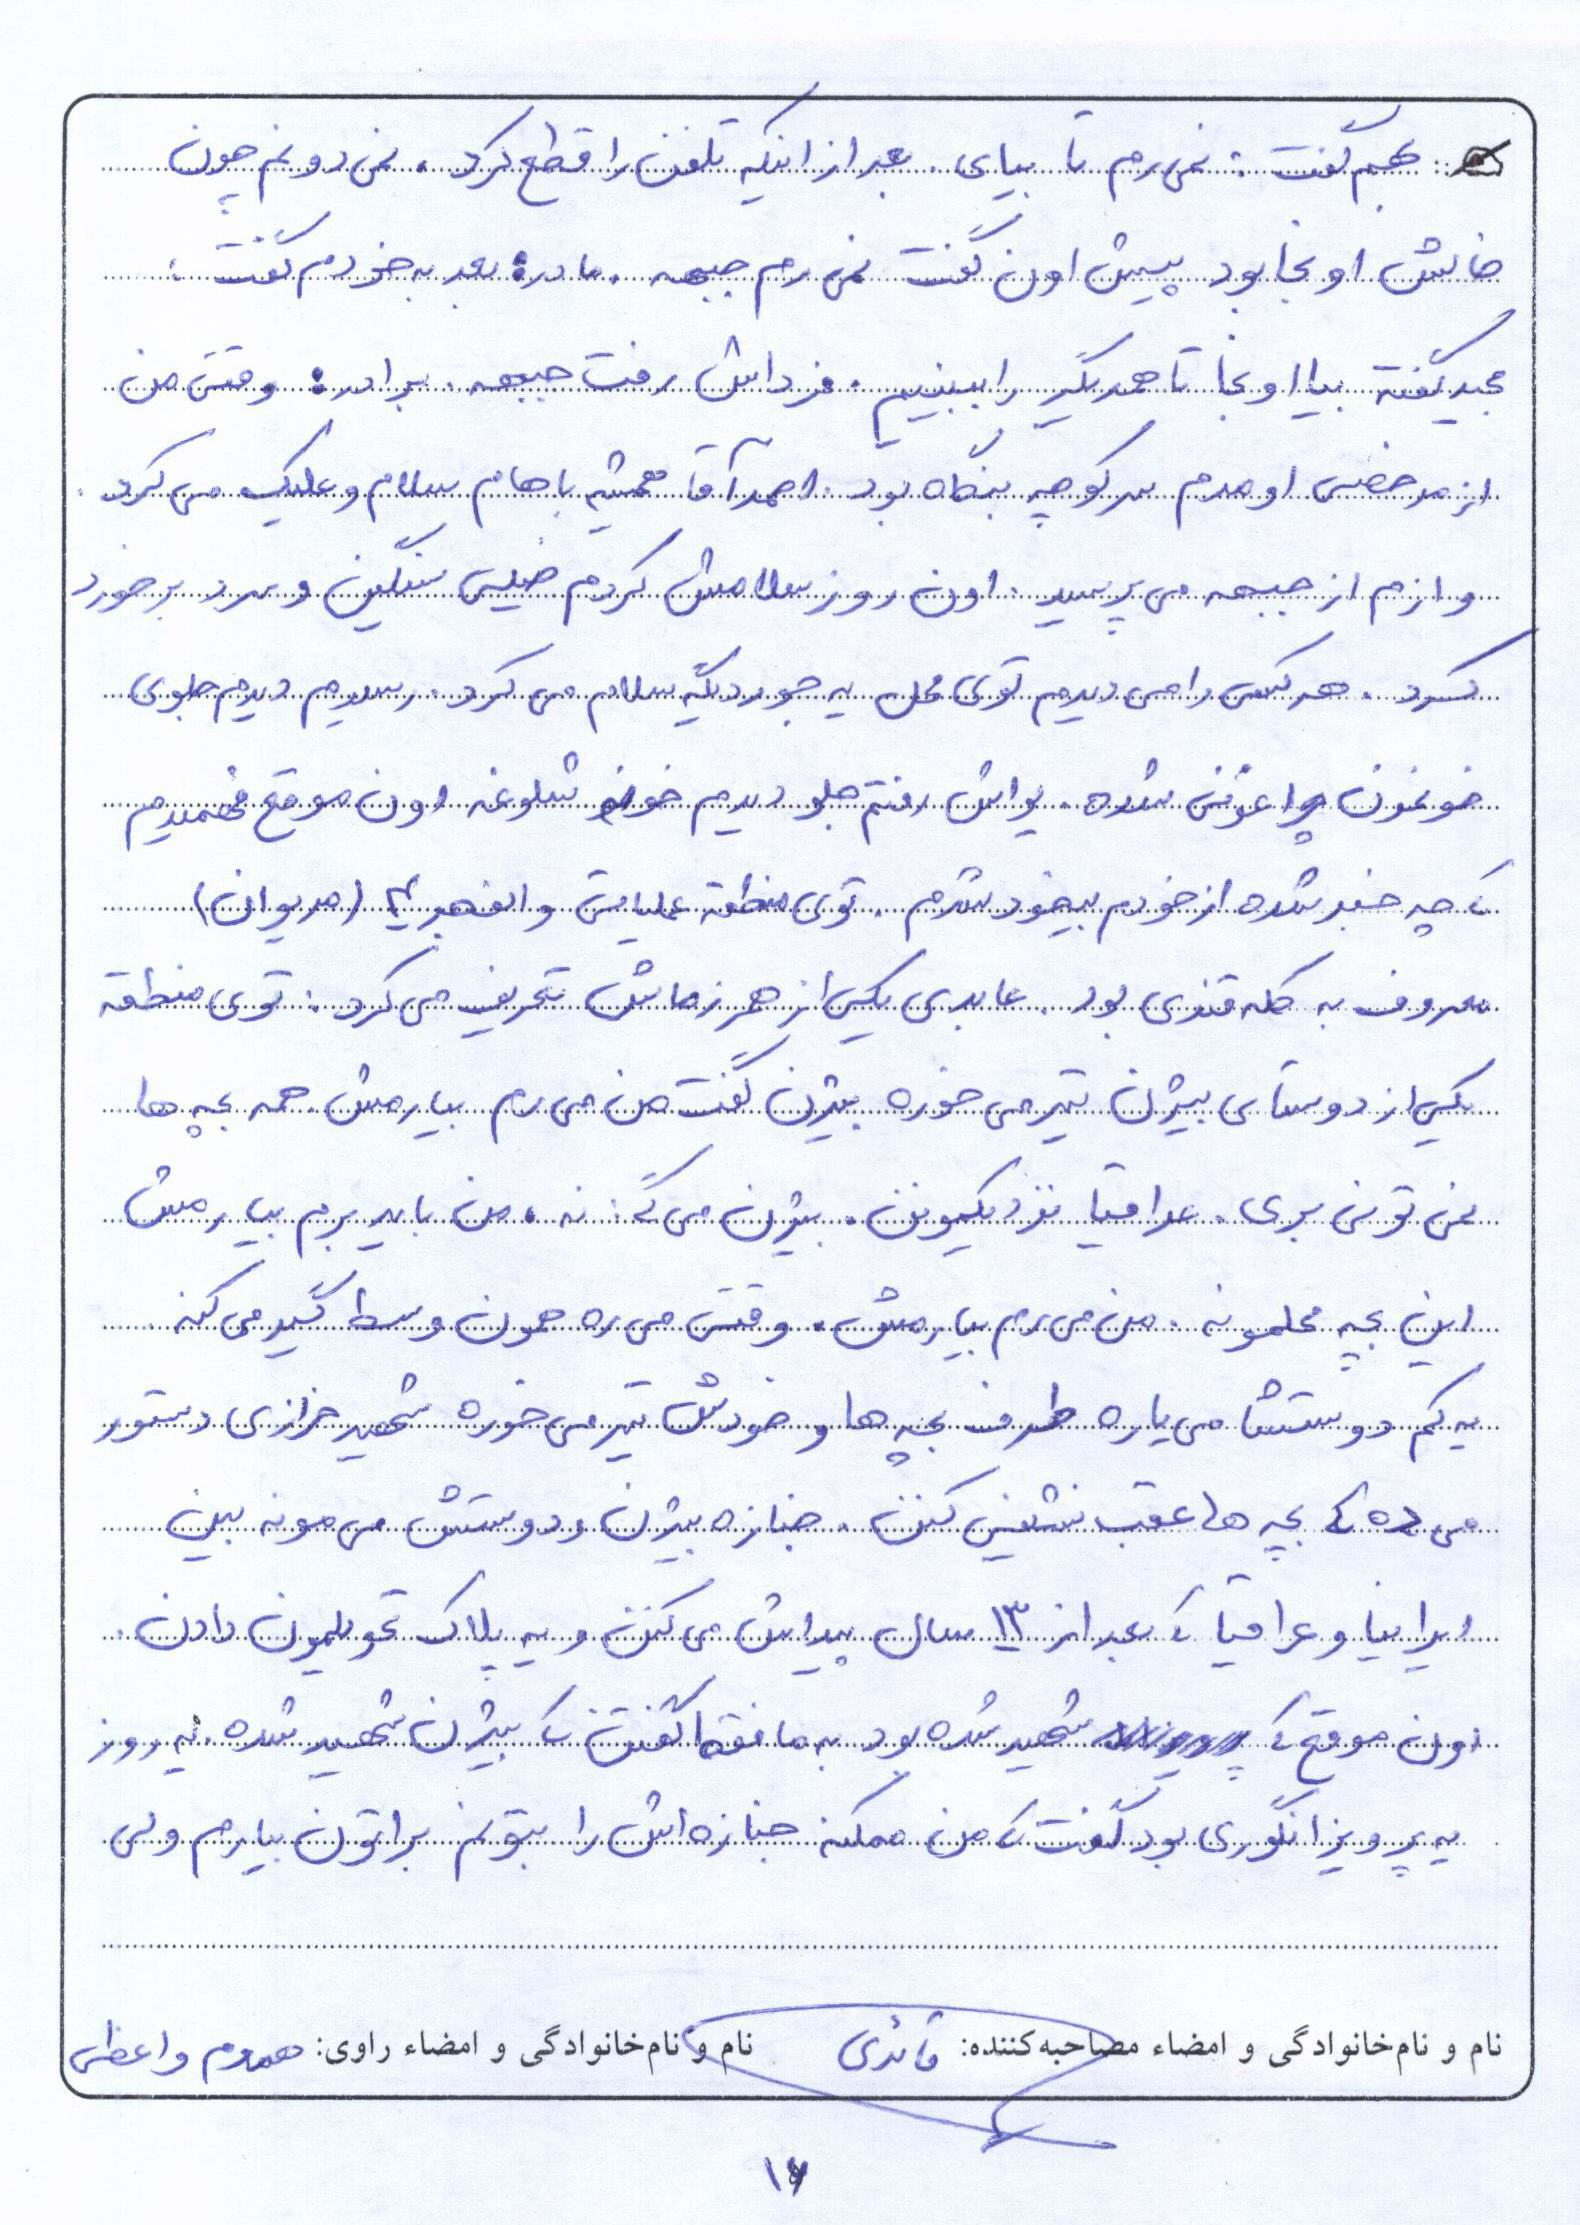 بهم گفت: نمی رم تا بیای. بعد از اینکه تلفن را قطع کرد. نمی دونم چون
خانمش اونجا بود پیش اون گفت نمی رم جبهه. مادر: بعد به خودم گفت:
مجید گفته بیا اونجا تا همدیگر را ببینیم. فرداش رفت جبهه. برادر: وقتی من
از مرخصی اومدم سر کوچه بنگاه بود. احمد آقا همیشه باهام سلام و علیک می کرد.
و ازم از جبهه می پرسید. اون روز سلامش کردم خیلی سنگین و سرد برخورد
کرد. هر کس را می دیدم توی محل یه جور دیگه سلام می کرد. رسیدم دیدم جلوی
خونمون چراغونی شده. یواش رفتم جلو دیدم خونه شلوغه اون موقع فهمیدم
که چه خبر شده از خودم بیخود شدم. توی منطقه عملیاتی والفجر ۴ (مریوان)
معروف به کله قندی بود. عابدی یکی از همرزماش تعریف می کرد: توی منطقه
یکی از دوستای بیژن تیر می خوره بیژن گفت من می رم بیارمش همه بچه ها
نمی تونی بری. عراقیا نزدیکیونن. بیژن می گه: نه، من باید برم بیارمش
این بچه محلمونه. من می رم بیارمش. وقتی می ره همون وسط گیر می کنه
یه کم دوستشا می یاره طرف بچه ها و خودش تیر می خوره شهید خرازی دستور
می ده که بچه ها عقب نشینی کنن. جنازه بیژن و دوستش می مونه بین
ایرانیا و عراقیا که بعد از ۱۳ سال پیداش می کنن و یه پلاک تحویلمون دادن.
اون موقع که شهید شده بود به ما فقط گفتن که بیژن شهید شده. یه روز
یه پرویز انگوری بود گفت که من ممکنه جنازه اش را بتونم براتون بیارم ولی
نام و نام‌خانوادگی و امضاء مصاحبه‌کننده: قائدی نام و نام‌خانوادگی و امضاء راوی: همدم واعظی